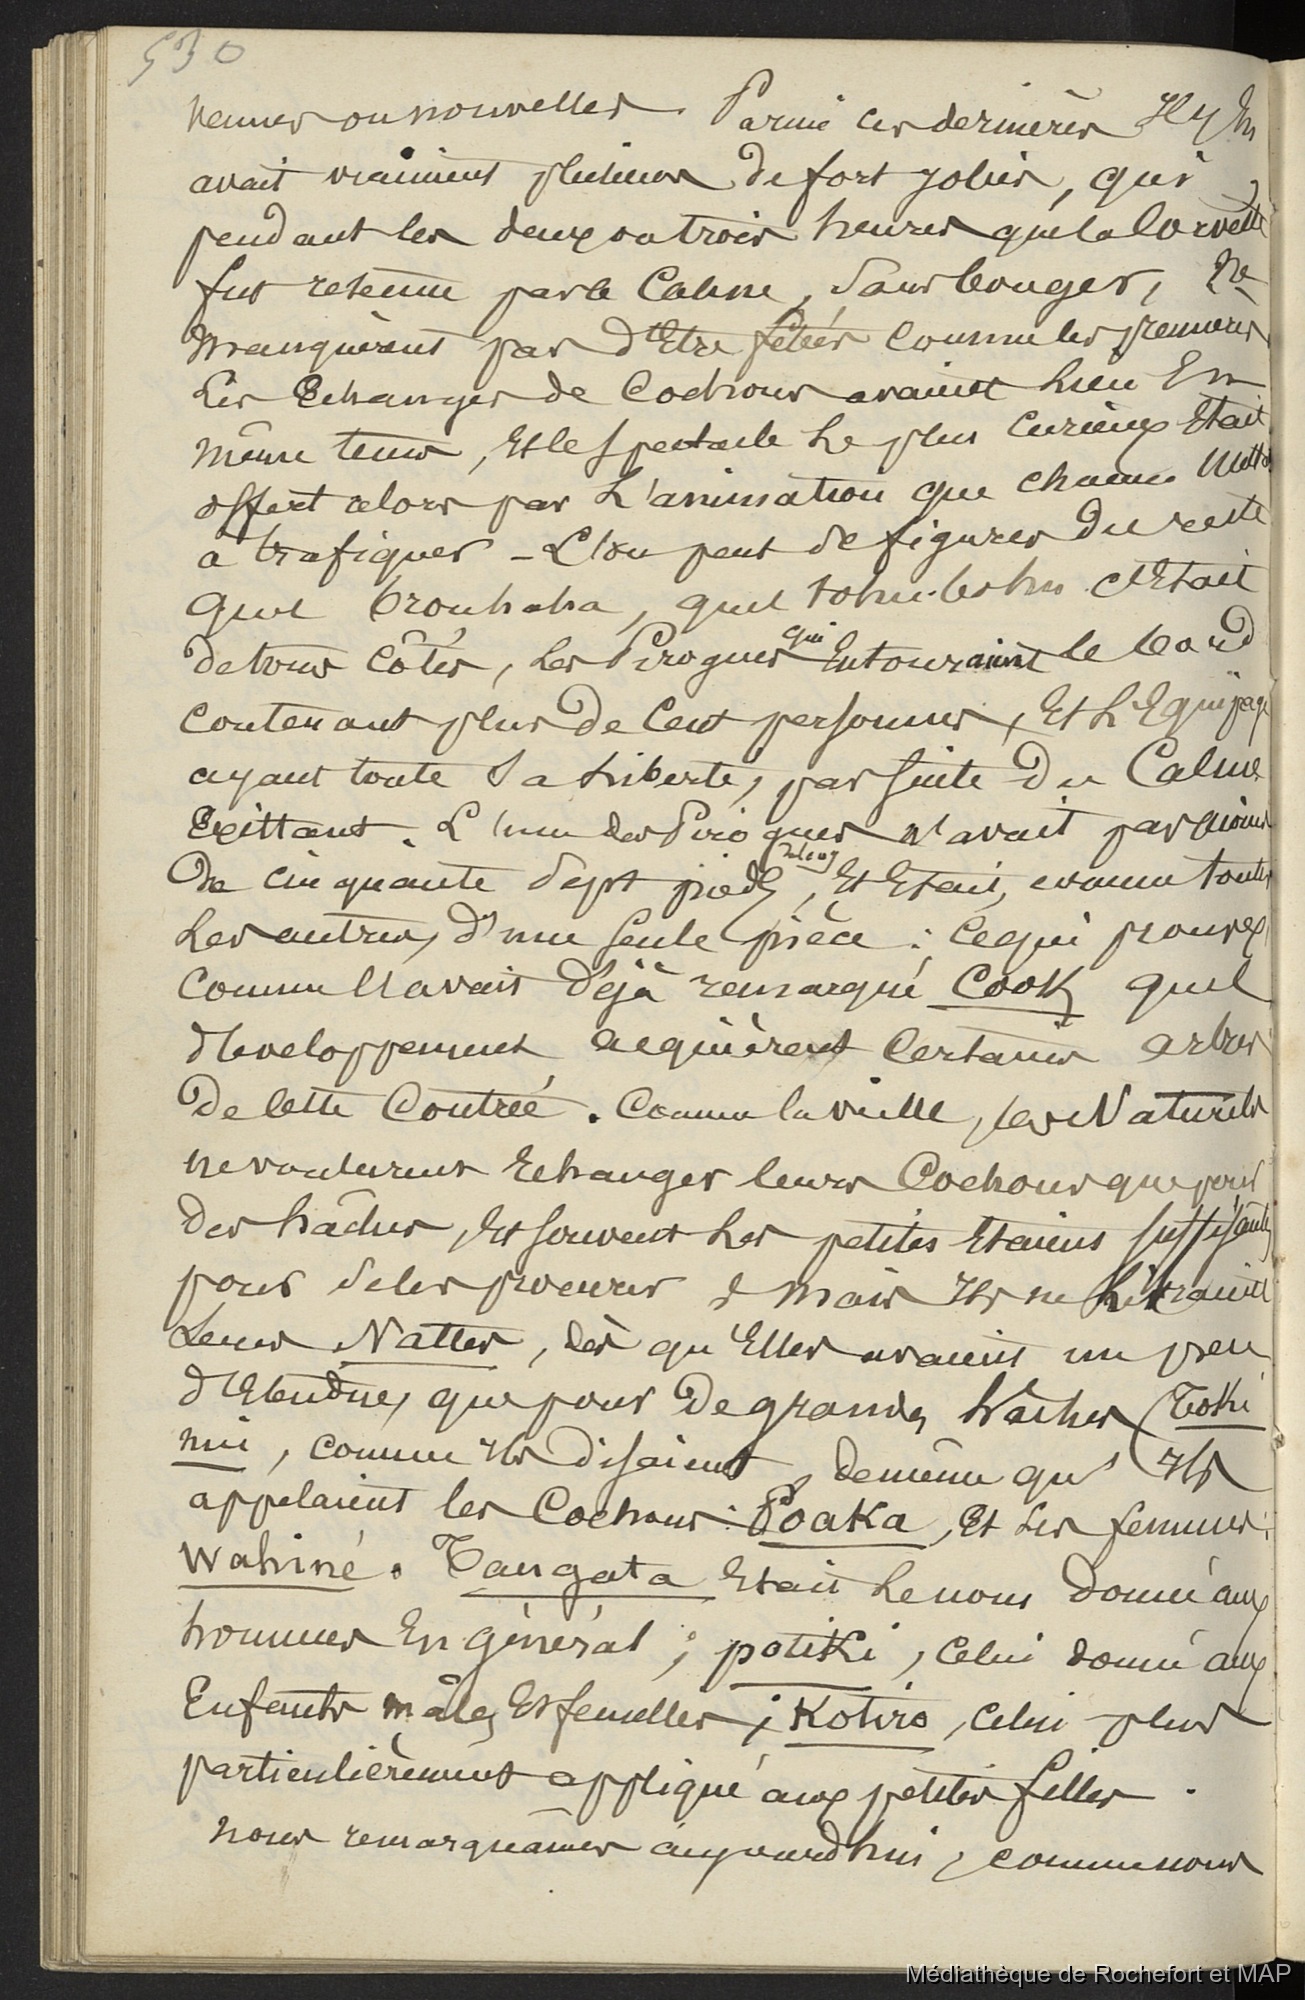 530
venues ou nouvelles. Parmi ces dernières Il y En
avait vraiment plusieurs de fort jolies, qui,
pendant les deux ou trois heures que la Corvette
fut retenue par le Calme, Sans bouger, Ne
manquèrent pas d'Etre fêtées Comme les premieres.
Les Echanges de Cochons avaient Lieu En
même tems, Et le spectacle Le plus Curieux Etait
offert alors par L'animation que chacun Mettait
à trafiquer - L'on peut se figurer du reste
Quel brouhaha, quel tohu-bohu c'Etait
de tous Côtés, Les Pirogues qui Entouraient le bord
Contenant plus de Cent personnes, Et L'Equipage
ayant toute Sa Liberté, par suite du Calme
Existant. L'une des Pirogues n'avait pas moins
De cinquante Sept pieds de long, Et Etait, comme toutes
Les autres, d'une seule pièce : Ce qui prouve,
Comme l'avait déjà remarqué Cook quel
developpement acquièrent Certains arbres
De Cette Contrée. Comme la veille, les Naturels
ne voulurent Echanger leurs Cochons que pour
Des hâches, Et souvent Les petites Etaient suffisantes
pour Se les procurer ; mais Ils ne Livraient
Leurs Nattes, dès qu'Elles avaient un peu
d'Etendue, que pour De grandes hâches (Toki
nui, comme Ils disaient, de même qu'Ils
appelaient les Cochons : Poaka, Et Les femmes :
Wahiné. Tangata Etait Le nom Donné aux
hommes En général ; potiki, Celui donné aux
Enfants mâles Et femelles ; Kotiro, Celui plus
particulièrement appliqué aux petites filles.
Nous remarquâmes aujourd'hui, comme nous
Médiathèque de Rochefort et MAP